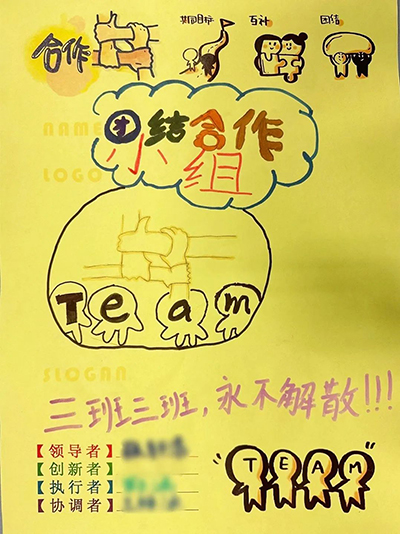 合作
共同目标 互补 团结
NAME
团结合作
小组
LOGO
Team
SLOGAN
三班三班，永不解散!!!
【领导者】
【创新者】
【执行者】
【协调者】
"TEAM"